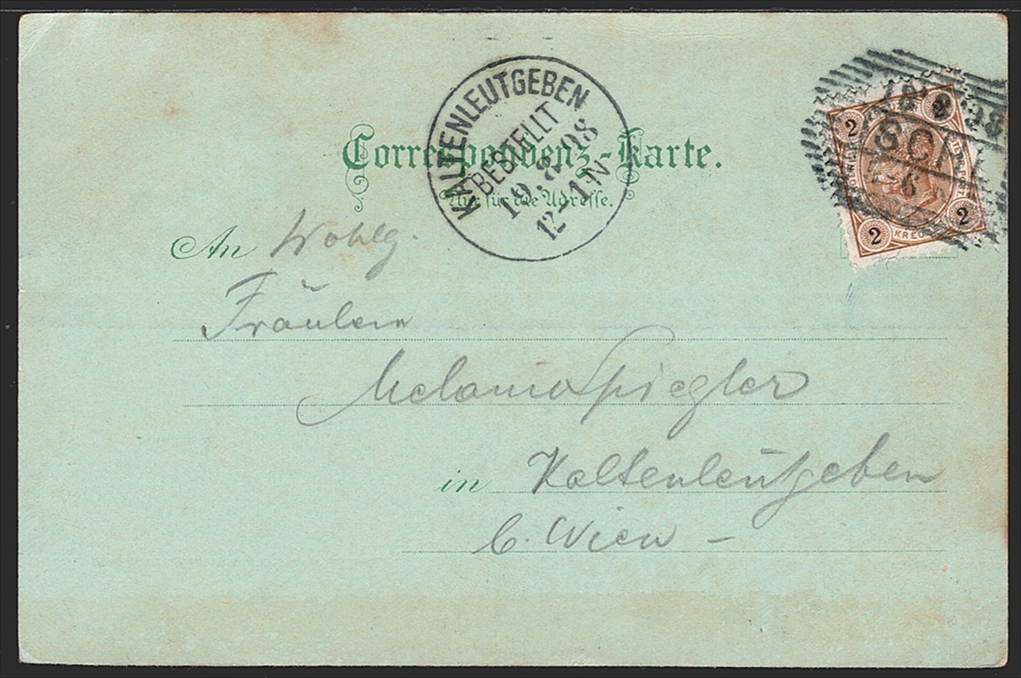 KALTENLEUTGEBEN
BESTELLT
19.8.98
12-1N
Correspondenz-Karte.
Nur für die Adresse.
2 2
KREUZER
2 2
An Wohlg.
Fräulein
Melanie Spiegler
in Kaltenleutgeben
b. Wien -